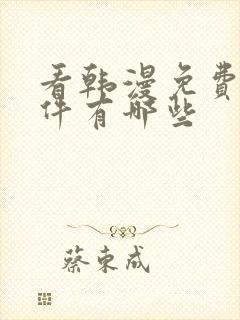 看韩漫免费
件有哪些
蔡东成